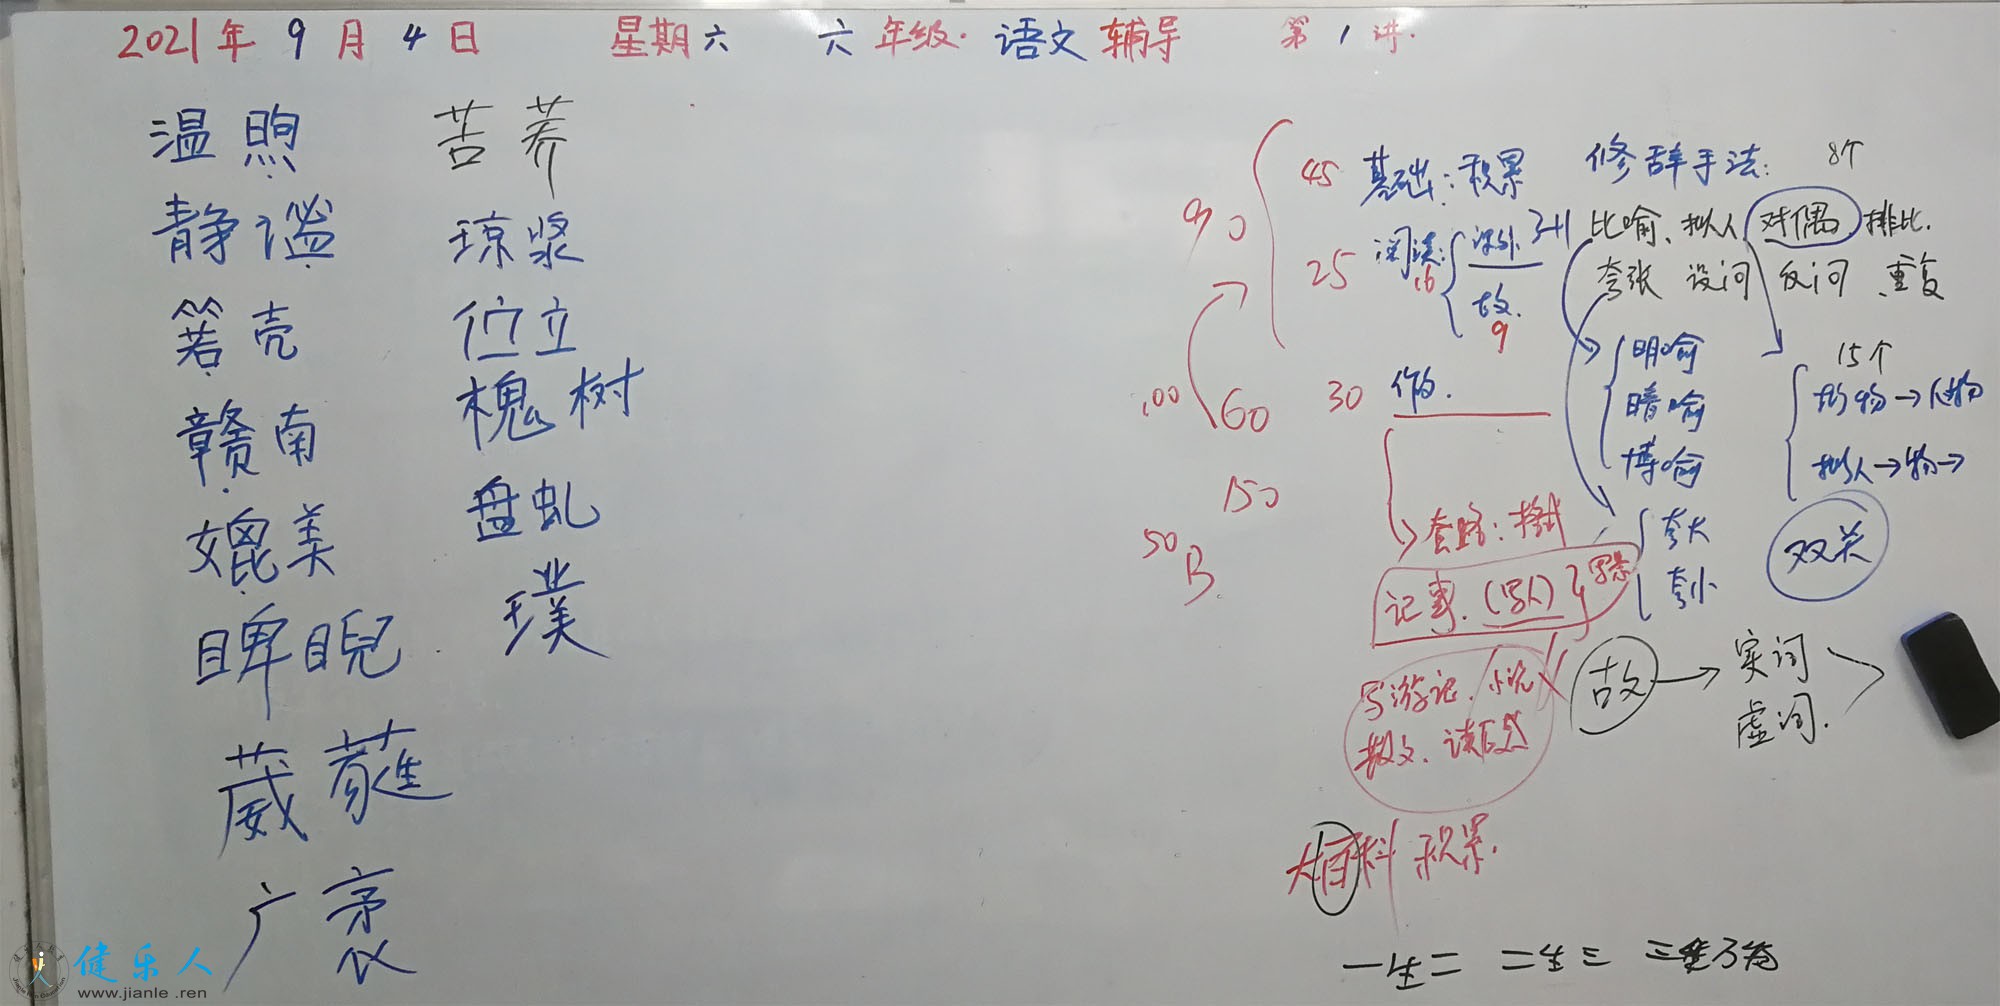 2021年 9 月 4 日 星期六 六年级. 语文辅导 第1讲.
温煦 苦荞
静谧 琼浆
箬壳 伫立
赣南 槐树
媲美 盘虬
睥睨 璞
葳蕤
广袤
90
100
60
150
50
B
45 基础:积累
25 阅读: 16
课外 3+1
古文.
9
30 作文.
套路:
记事.(写人)写景
写游记. 小说
散文. 读后感
大百科 积累.
修辞手法: 8个
比喻、拟人 对偶 排比.
夸张 设问 反问 重复
明喻
暗喻
博喻
夸大
夸小
15个
拟物→人→物
拟人→物→
双关
古文→实词
虚词.
一生二 二生三 三生万物
健乐人
www.jianle.ren